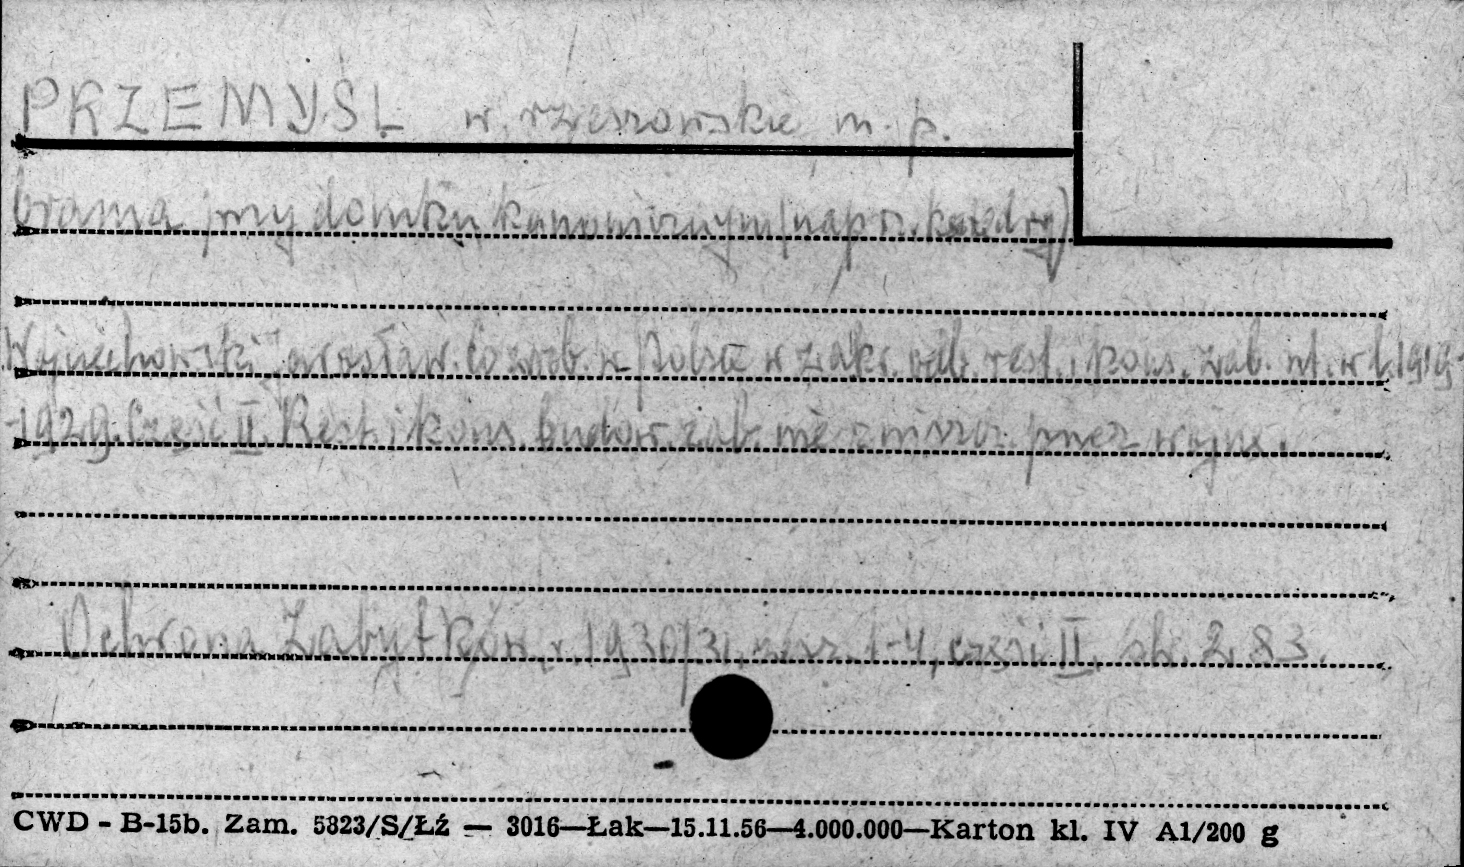 PRZEMYŚL w. rzeszowskie m. p.
brama przy domku kanonicznym (napr. katedry)
Wojciechowski Jarosław. Co zrob. w Polsce w zakr. odb. rest. i kons. zab. nt. w l. 1919-
-1929. Część II. Rest. i kons. budow. zab. nie zniszcz. przez wojnę.
Ochrona Zabytków, r. 1930/31, zesz. 1-4, część II, str. 283.
CWD - B-15b. Zam. 5823/S/Łź — 3016—Łak—15.11.56—4.000.000—Karton kl. IV A1/200 g